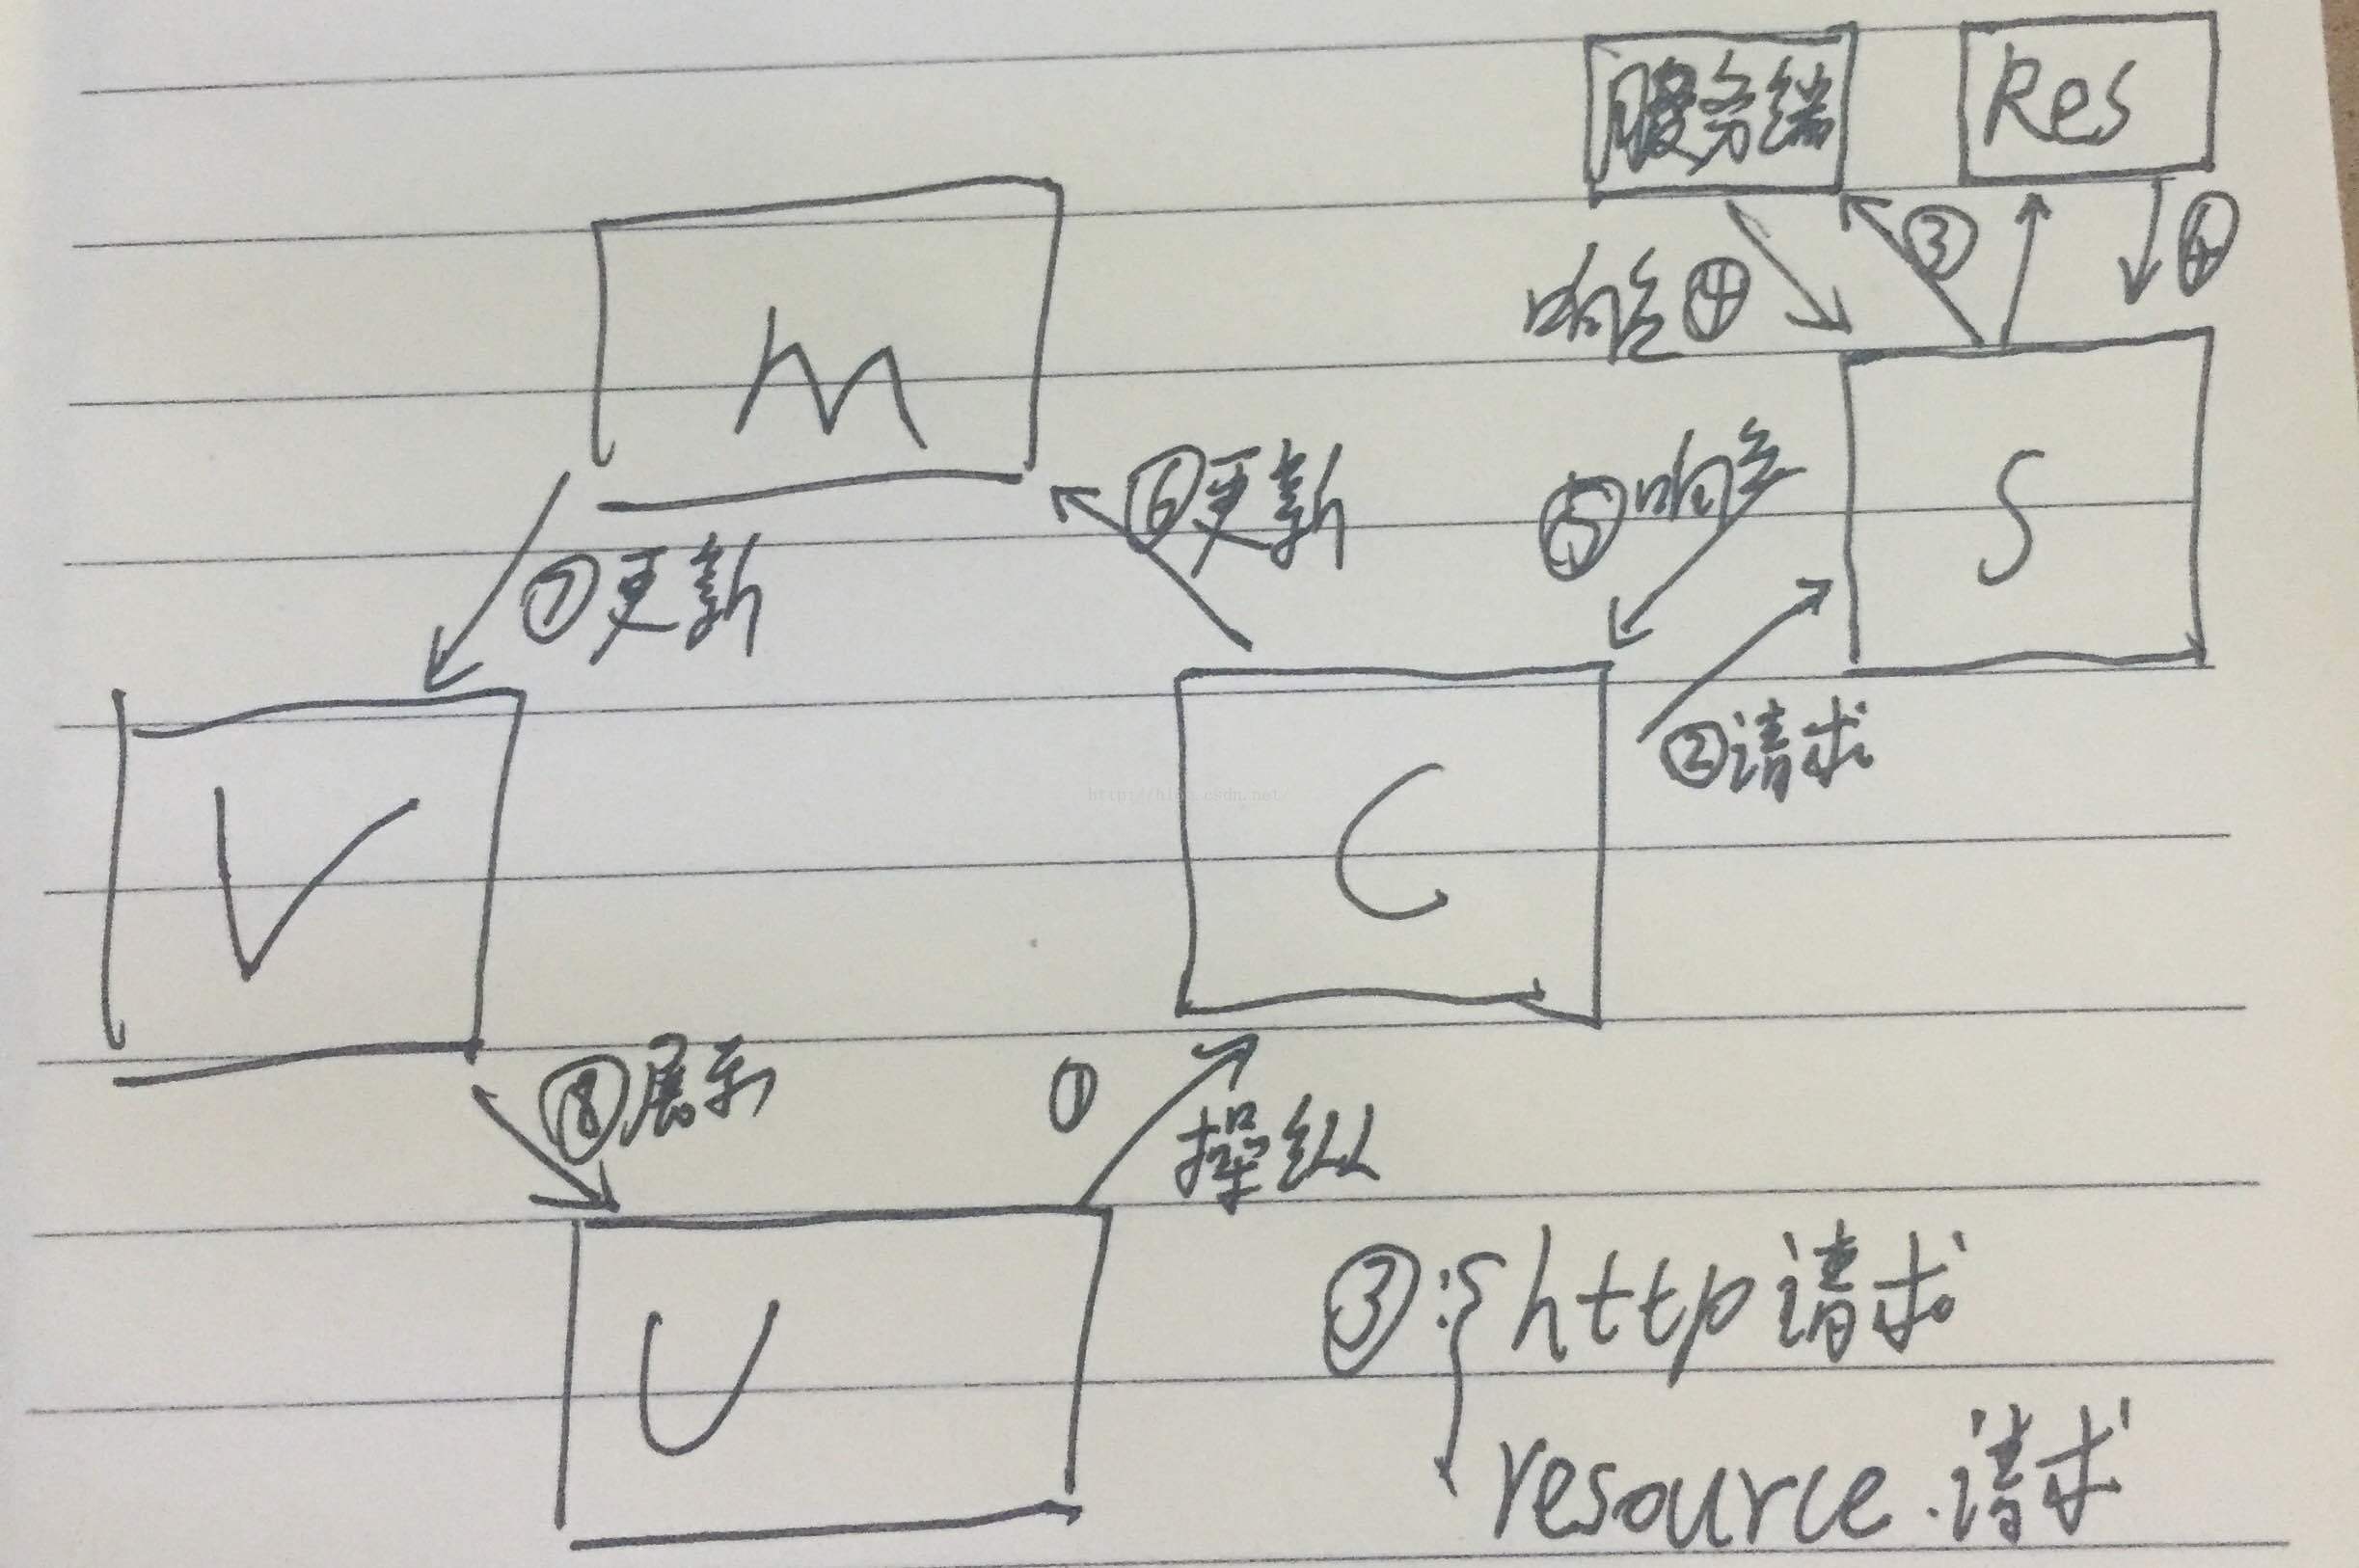 服务端 Res
M
③ ④
响应④
S
⑤响应
⑥更新
⑦更新
②请求
V
C
http://blog.csdn.net/
⑧展示
①
操纵
U
③:{ http请求
resource.请求